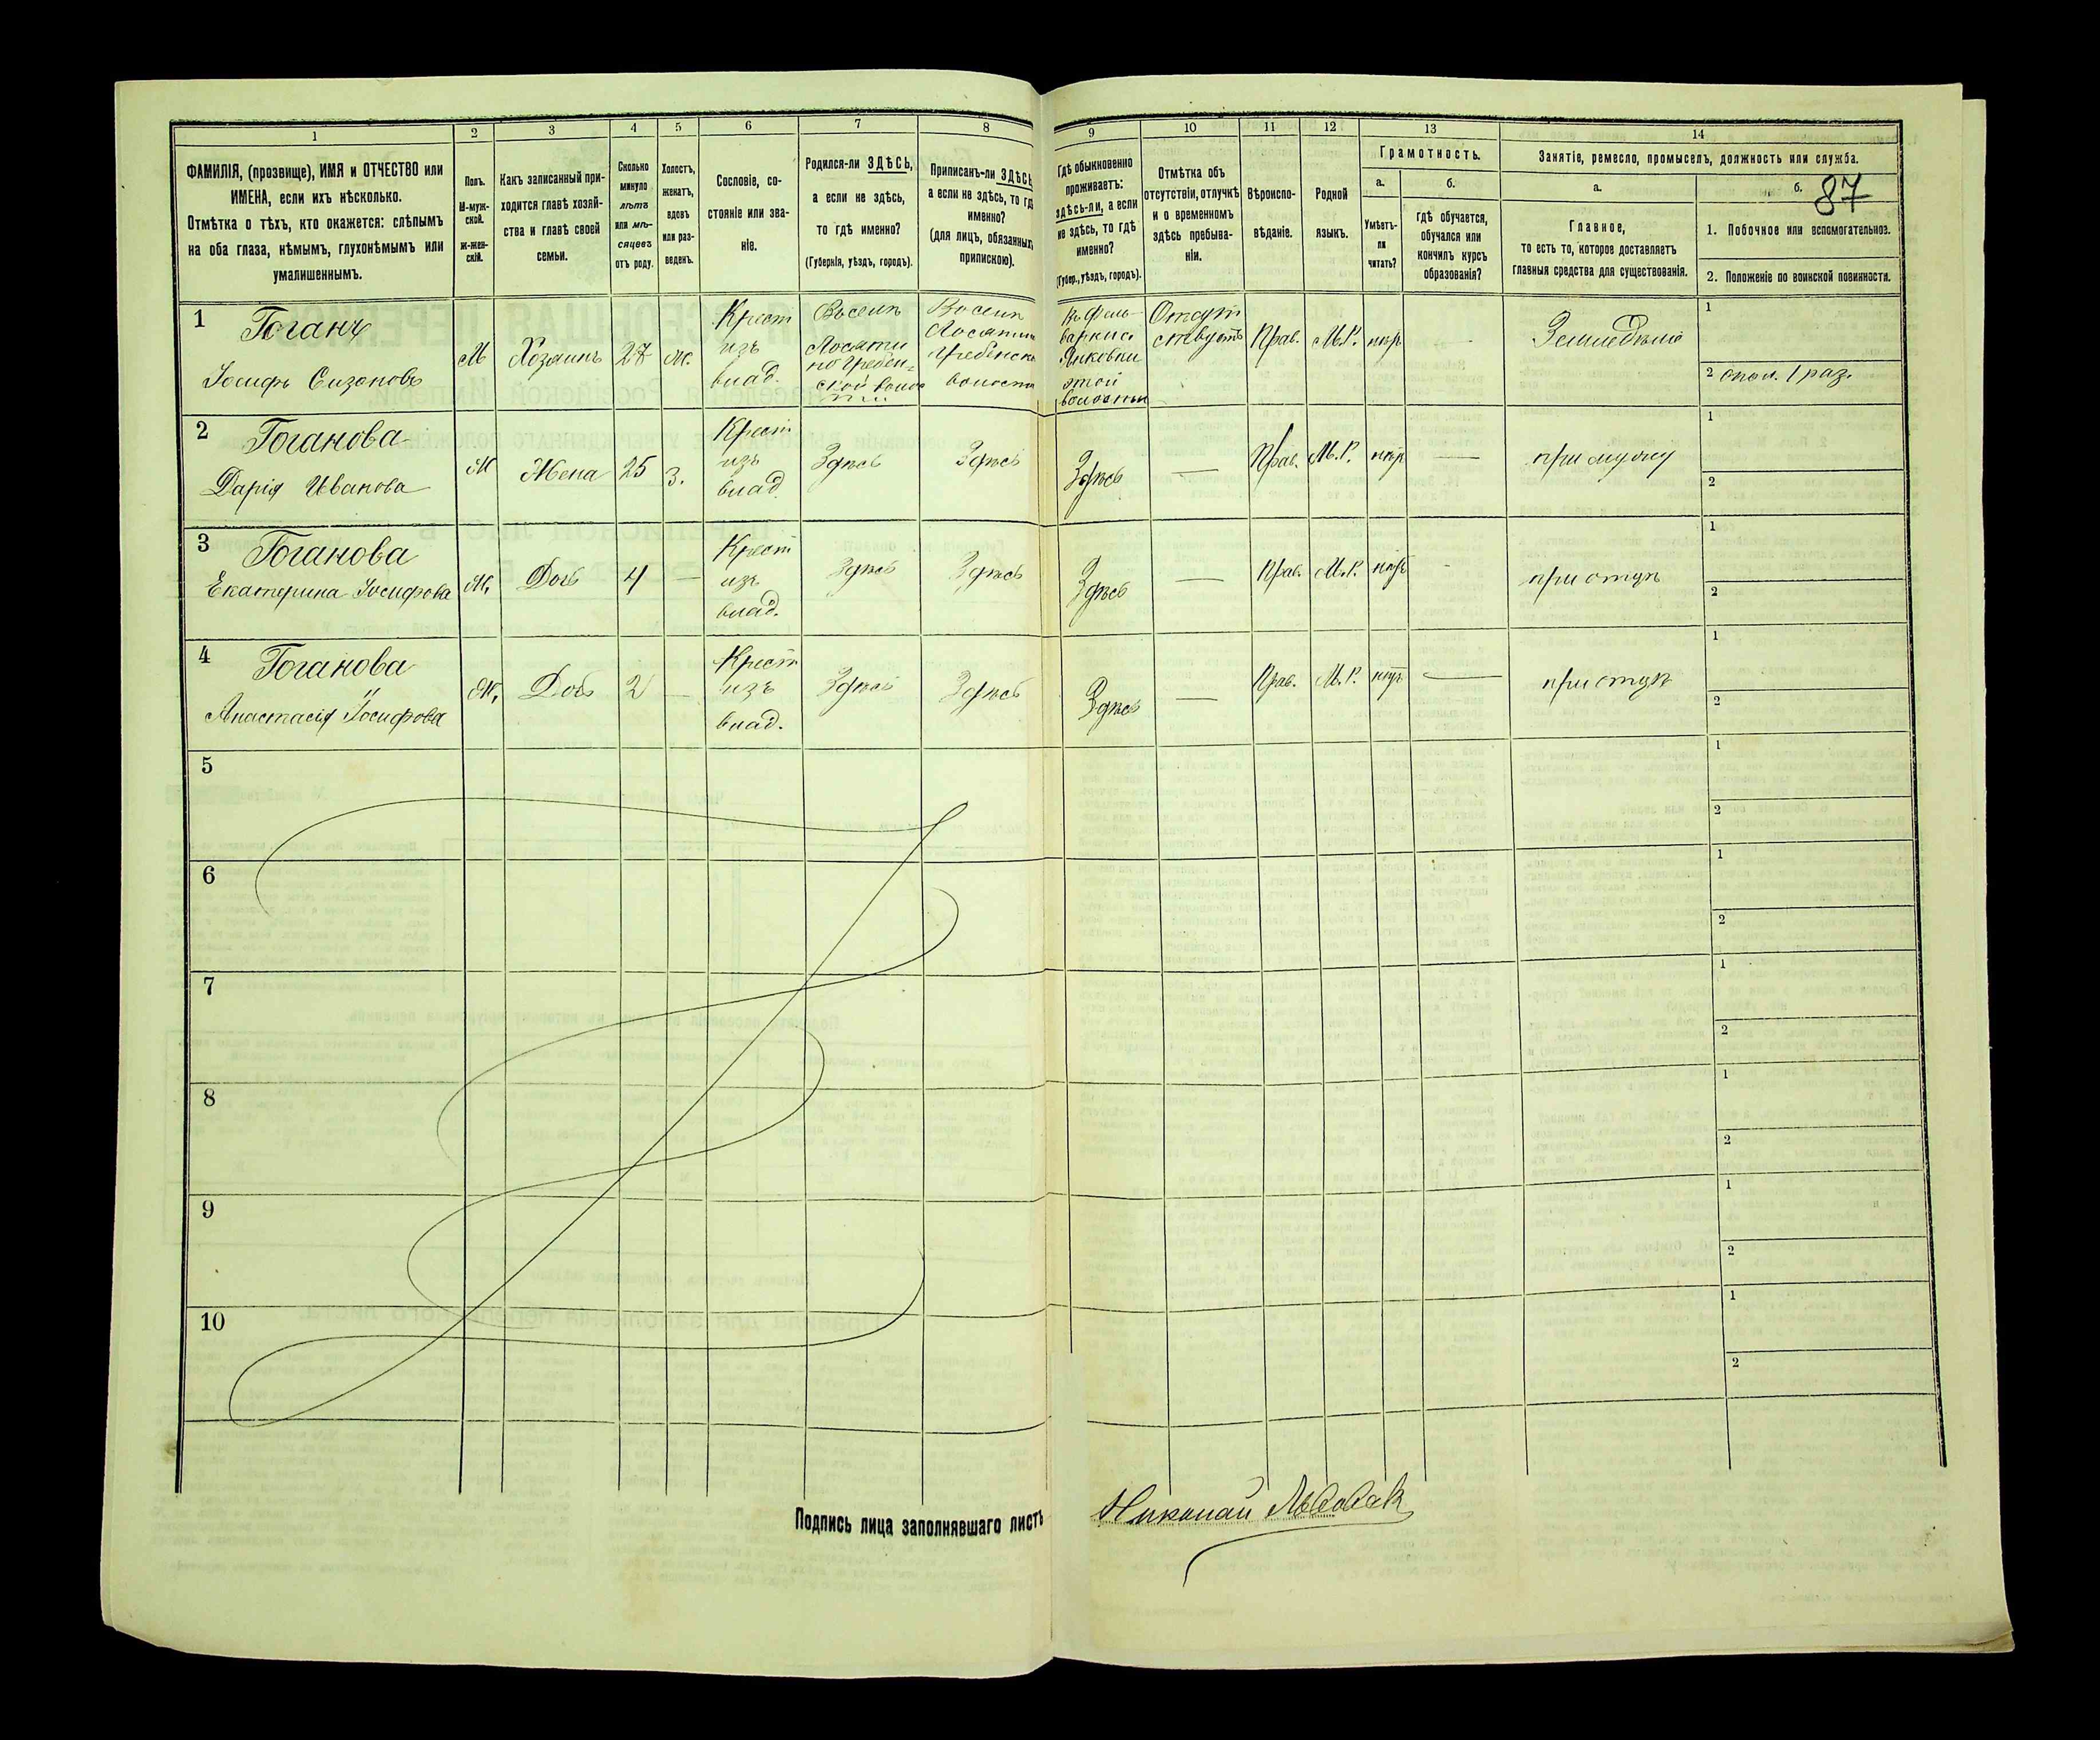 1
2
3
4
5
6
7
8
9
10
11
12
13
14
ФАМИЛІЯ, (прозвище), ИМЯ и ОТЧЕСТВО или
ИМЕНА, если ихъ нѣсколько.
Отмѣтка о тѣхъ, кто окажется: слѣпымъ
на оба глаза, нѣмымъ, глухонѣмымъ или
умалишеннымъ.
Полъ.
М-муж-
ской.
ж-жен-
скій.
Какъ записанный при-
ходится главѣ хозяй-
ства и главѣ своей
семьи.
Сколько
минуло
лѣтъ
или мѣ-
сяцевъ
отъ роду.
Холостъ,
женатъ,
вдовъ
или раз-
веденъ.
Сословіе, со-
стояніе или зва-
ніе.
Родился-ли ЗДѢСЬ,
а если не здѣсь,
то гдѣ именно?
(Губернія, уѣздъ, городъ).
Приписанъ-ли ЗДѢСЬ
а если не здѣсь, то гдѣ
именно?
(для лицъ, обязанныхъ
припискою).
Гдѣ обыкновенно
проживаетъ:
здѣсь-ли, а если
не здѣсь, то гдѣ
именно?
(Губер., уѣздъ, городъ).
Отмѣтка объ
отсутствіи, отлучкѣ
и о временномъ
здѣсь пребыва-
ніи.
Вѣроиспо-
вѣданіе.
Родной
языкъ.
Грамотность.
а.
Умѣетъ-
ли
читать?
б.
гдѣ обучается,
обучался или
кончилъ курсъ
образованія?
Занятіе, ремесло, промыселъ, должность или служба.
а.
Главное,
то есть то, которое доставляетъ
главныя средства для существованія.
б.
87
1. Побочное или вспомогательное.
2. Положеніе по воинской повинности.
1
Гоганъ
Іосифъ Сизоновъ
М
Хозяинъ
27
ж.
Крест
изъ
влад.
Въ селѣ
Лосяти
по Гребен-
ской волос
ти
Въ селѣ
Лосятин
Гребенско
волости
Въ Фоль-
варкис.
Янковки
этой
волости
Отсут
ствуетъ
Прав.
М.Р.
нѣр
Земледѣліе
1
2 опол. 1 раз.
2
Гоганова
Дарія Иванова
Ж
Жена
25
З.
Крест
изъ
влад.
Здѣсь
Здѣсь
Здѣсь
Прав.
М.Р.
нѣр
при мужу
1
2
3
Гоганова
Екатерина Іосифова
Ж.
Дочь
4
Крест
изъ
влад.
Здѣсь
Здѣсь
Здѣсь
Прав.
М.Р.
нѣр
при отцѣ
1
2
4
Гоганова
Анастасія Іосифова
Ж.
Дочь
2
Крест
изъ
влад.
Здѣсь
Здѣсь
Здѣсь
Прав.
М.Р.
нѣр
при отцѣ
1
2
5
1
2
6
1
2
7
1
2
8
1
2
9
1
2
10
1
2
Подпись лица заполнявшаго листъ
Николай